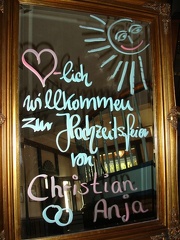 -lich
willkommen
zur Hochzeitsfeier
von
Christian
Anja